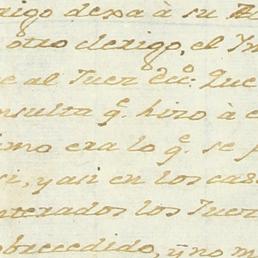 aigo dexa à su
otro clerigo, el In
e al Juez Ecco: Que
nsulta q.e hizo à e
imo era lo q.e se p
ci, y asi en los cas
nterados los Juez
obrecedido, y no m